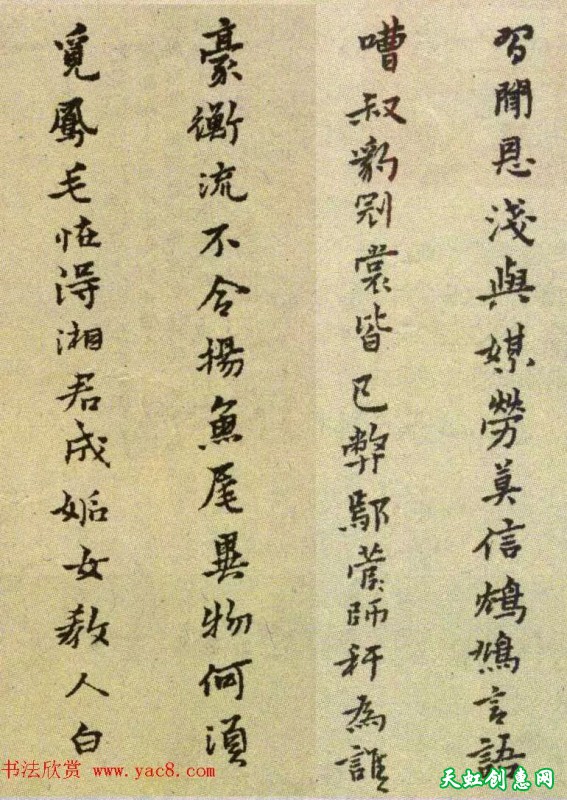 習聞恩淺與媒勞莫信鴆鳩言語
嘈叔豹裳皆已弊鄢師秆為誰
豪衡流不合揚魚尾異物何須
覓鳳毛怪得湘君成妬女教人白
书法欣赏 www.yac8.com
天虹创惠网